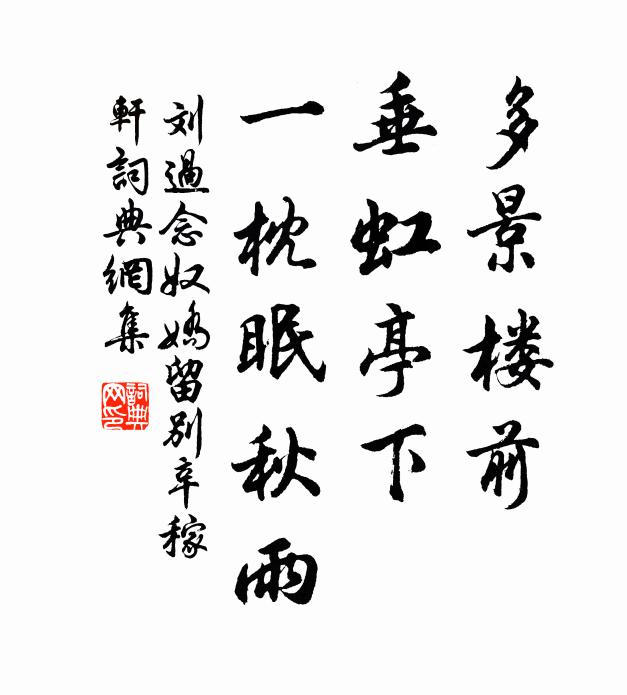 多景楼前
垂虹亭下
一枕眠秋雨
刘過念奴嬌留别辛稼
軒詞典網集
詞典
网印